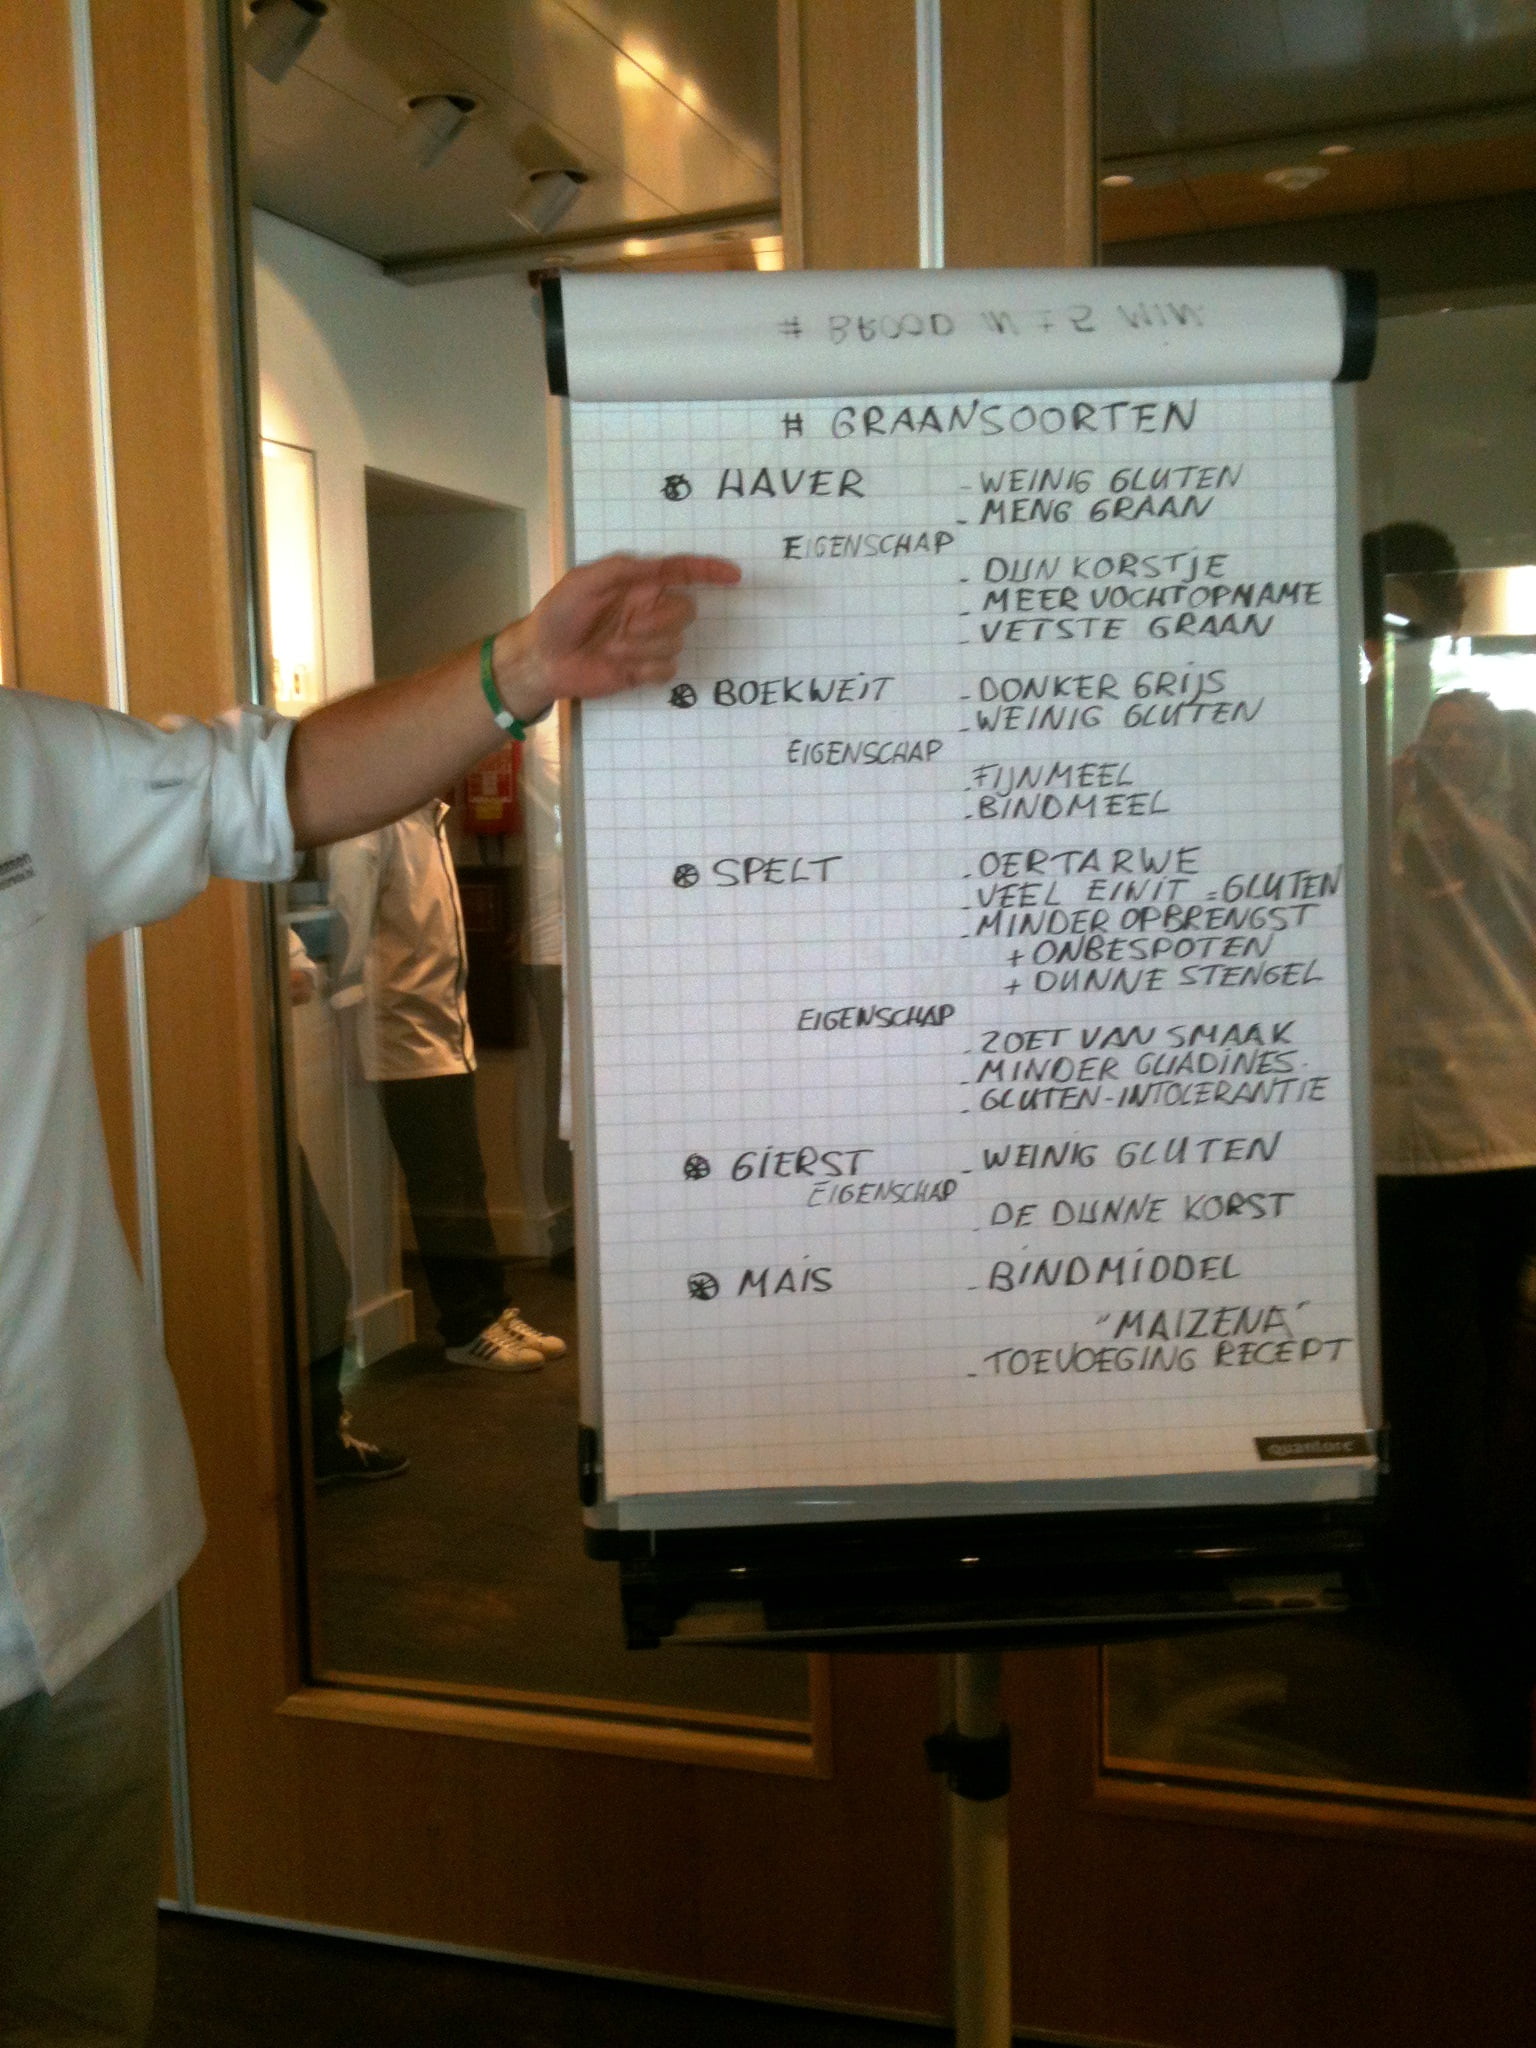 # BROOD IN ± 5 MIN.
# GRAANSOORTEN
HAVER - WEINIG GLUTEN
- MENG GRAAN
EIGENSCHAP
- DUN KORSTJE
- MEER VOCHTOPNAME
- VETSTE GRAAN
BOEKWEIT - DONKER GRIJS
- WEINIG GLUTEN
EIGENSCHAP
- FIJNMEEL
- BINDMEEL
SPELT - OERTARWE
- VEEL EIWIT = GLUTEN
- MINDER OPBRENGST
+ ONBESPOTEN
+ DUNNE STENGEL
EIGENSCHAP
- ZOET VAN SMAAK
- MINDER GLIADINES.
- GLUTEN-INTOLERANTIE
GIERST - WEINIG GLUTEN
EIGENSCHAP
- DE DUNNE KORST
MAIS - BINDMIDDEL
"MAIZENA"
- TOEVOEGING RECEPT
quantore